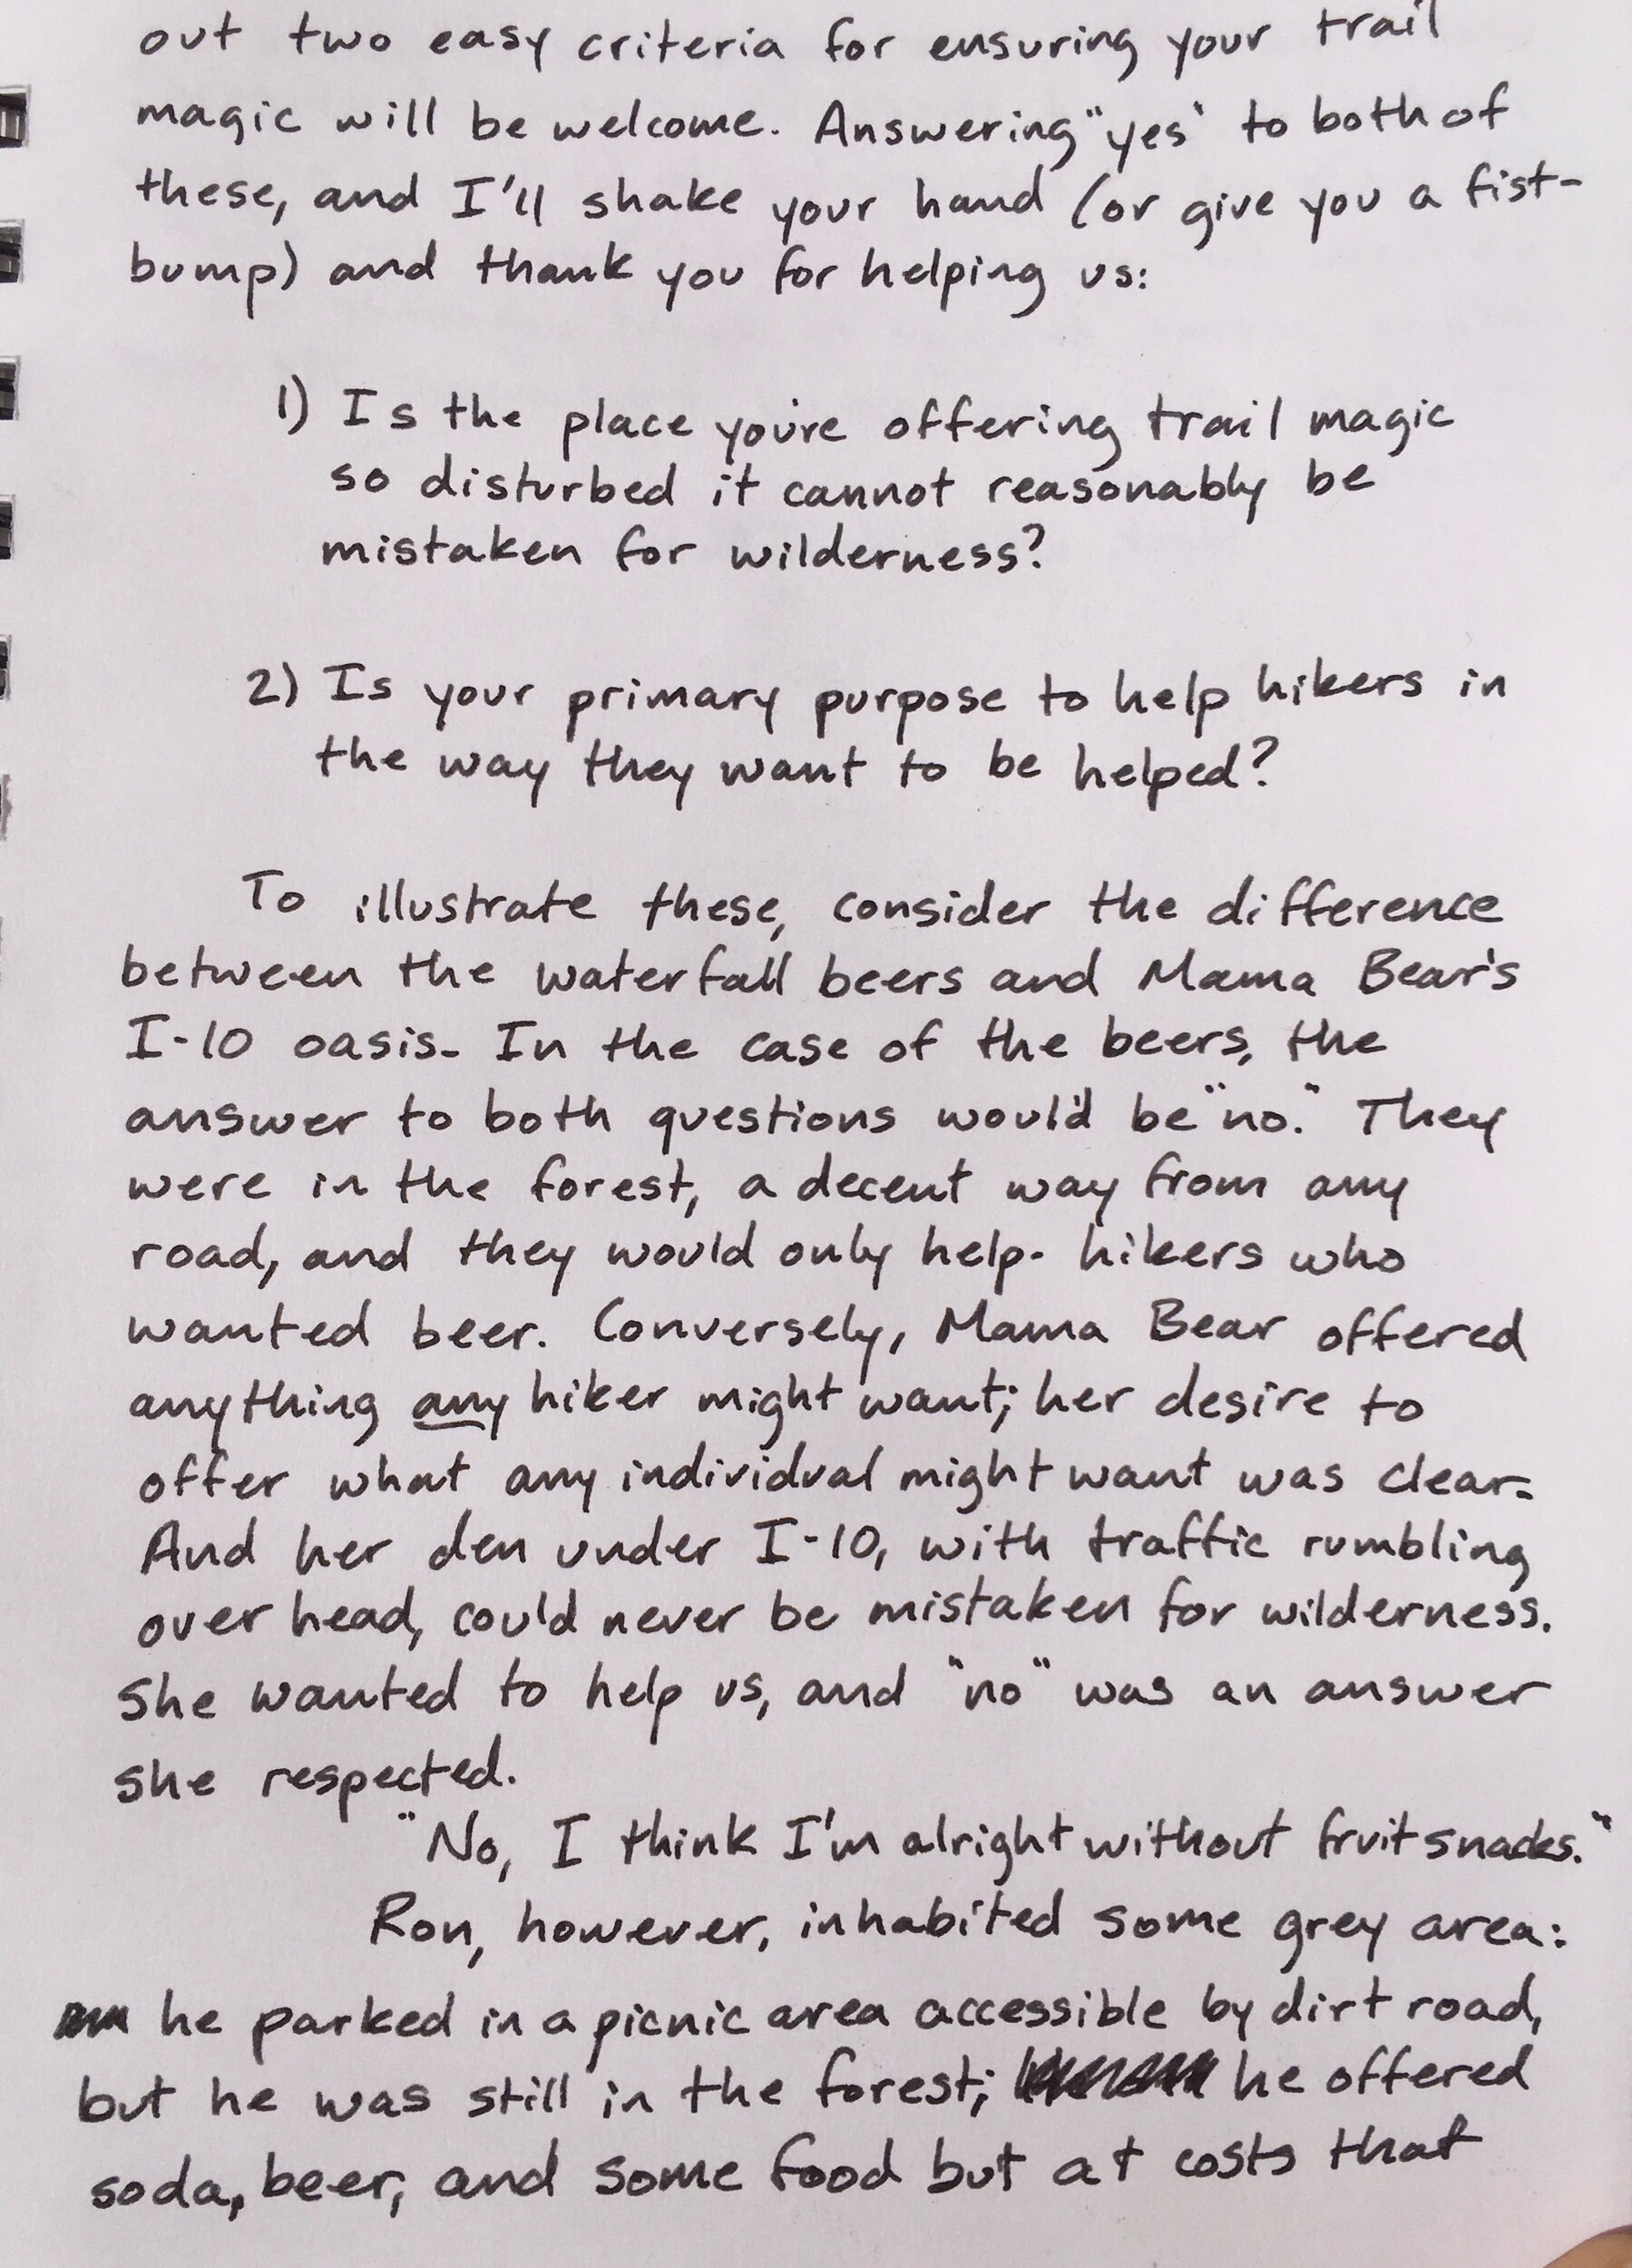 out two easy criteria for ensuring your trail
magic will be welcome. Answering "yes" to both of
these, and I'll shake your hand (or give you a fist-
bump) and thank you for helping us:
1) Is the place you're offering trail magic
so disturbed it cannot reasonably be
mistaken for wilderness?
2) Is your primary purpose to help hikers in
the way they want to be helped?
To illustrate these, consider the difference
between the waterfall beers and Mama Bear's
I-10 oasis. In the case of the beers, the
answer to both questions would be "no." They
were in the forest, a decent way from any
road, and they would only help hikers who
wanted beer. Conversely, Mama Bear offered
anything any hiker might want; her desire to
offer what any individual might want was clear.
And her den under I-10, with traffic rumbling
over head, could never be mistaken for wilderness.
She wanted to help us, and "no" was an answer
she respected.
"No, I think I'm alright without fruit snacks."
Ron, however, inhabited some grey area:
he parked in a picnic area accessible by dirt road,
but he was still in the forest; he offered
soda, beer, and some food but at costs that